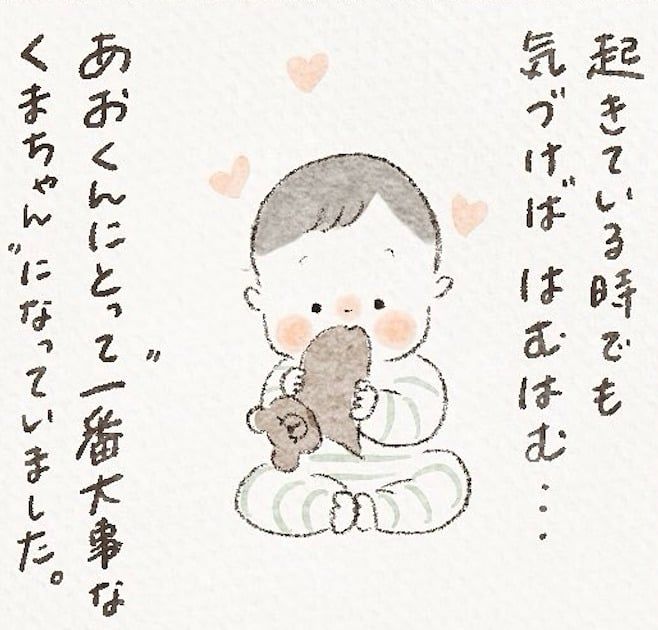 起きている時でも
気づけば はむはむ...
あおくんにとって"一番大事な
くまちゃん"になっていました。